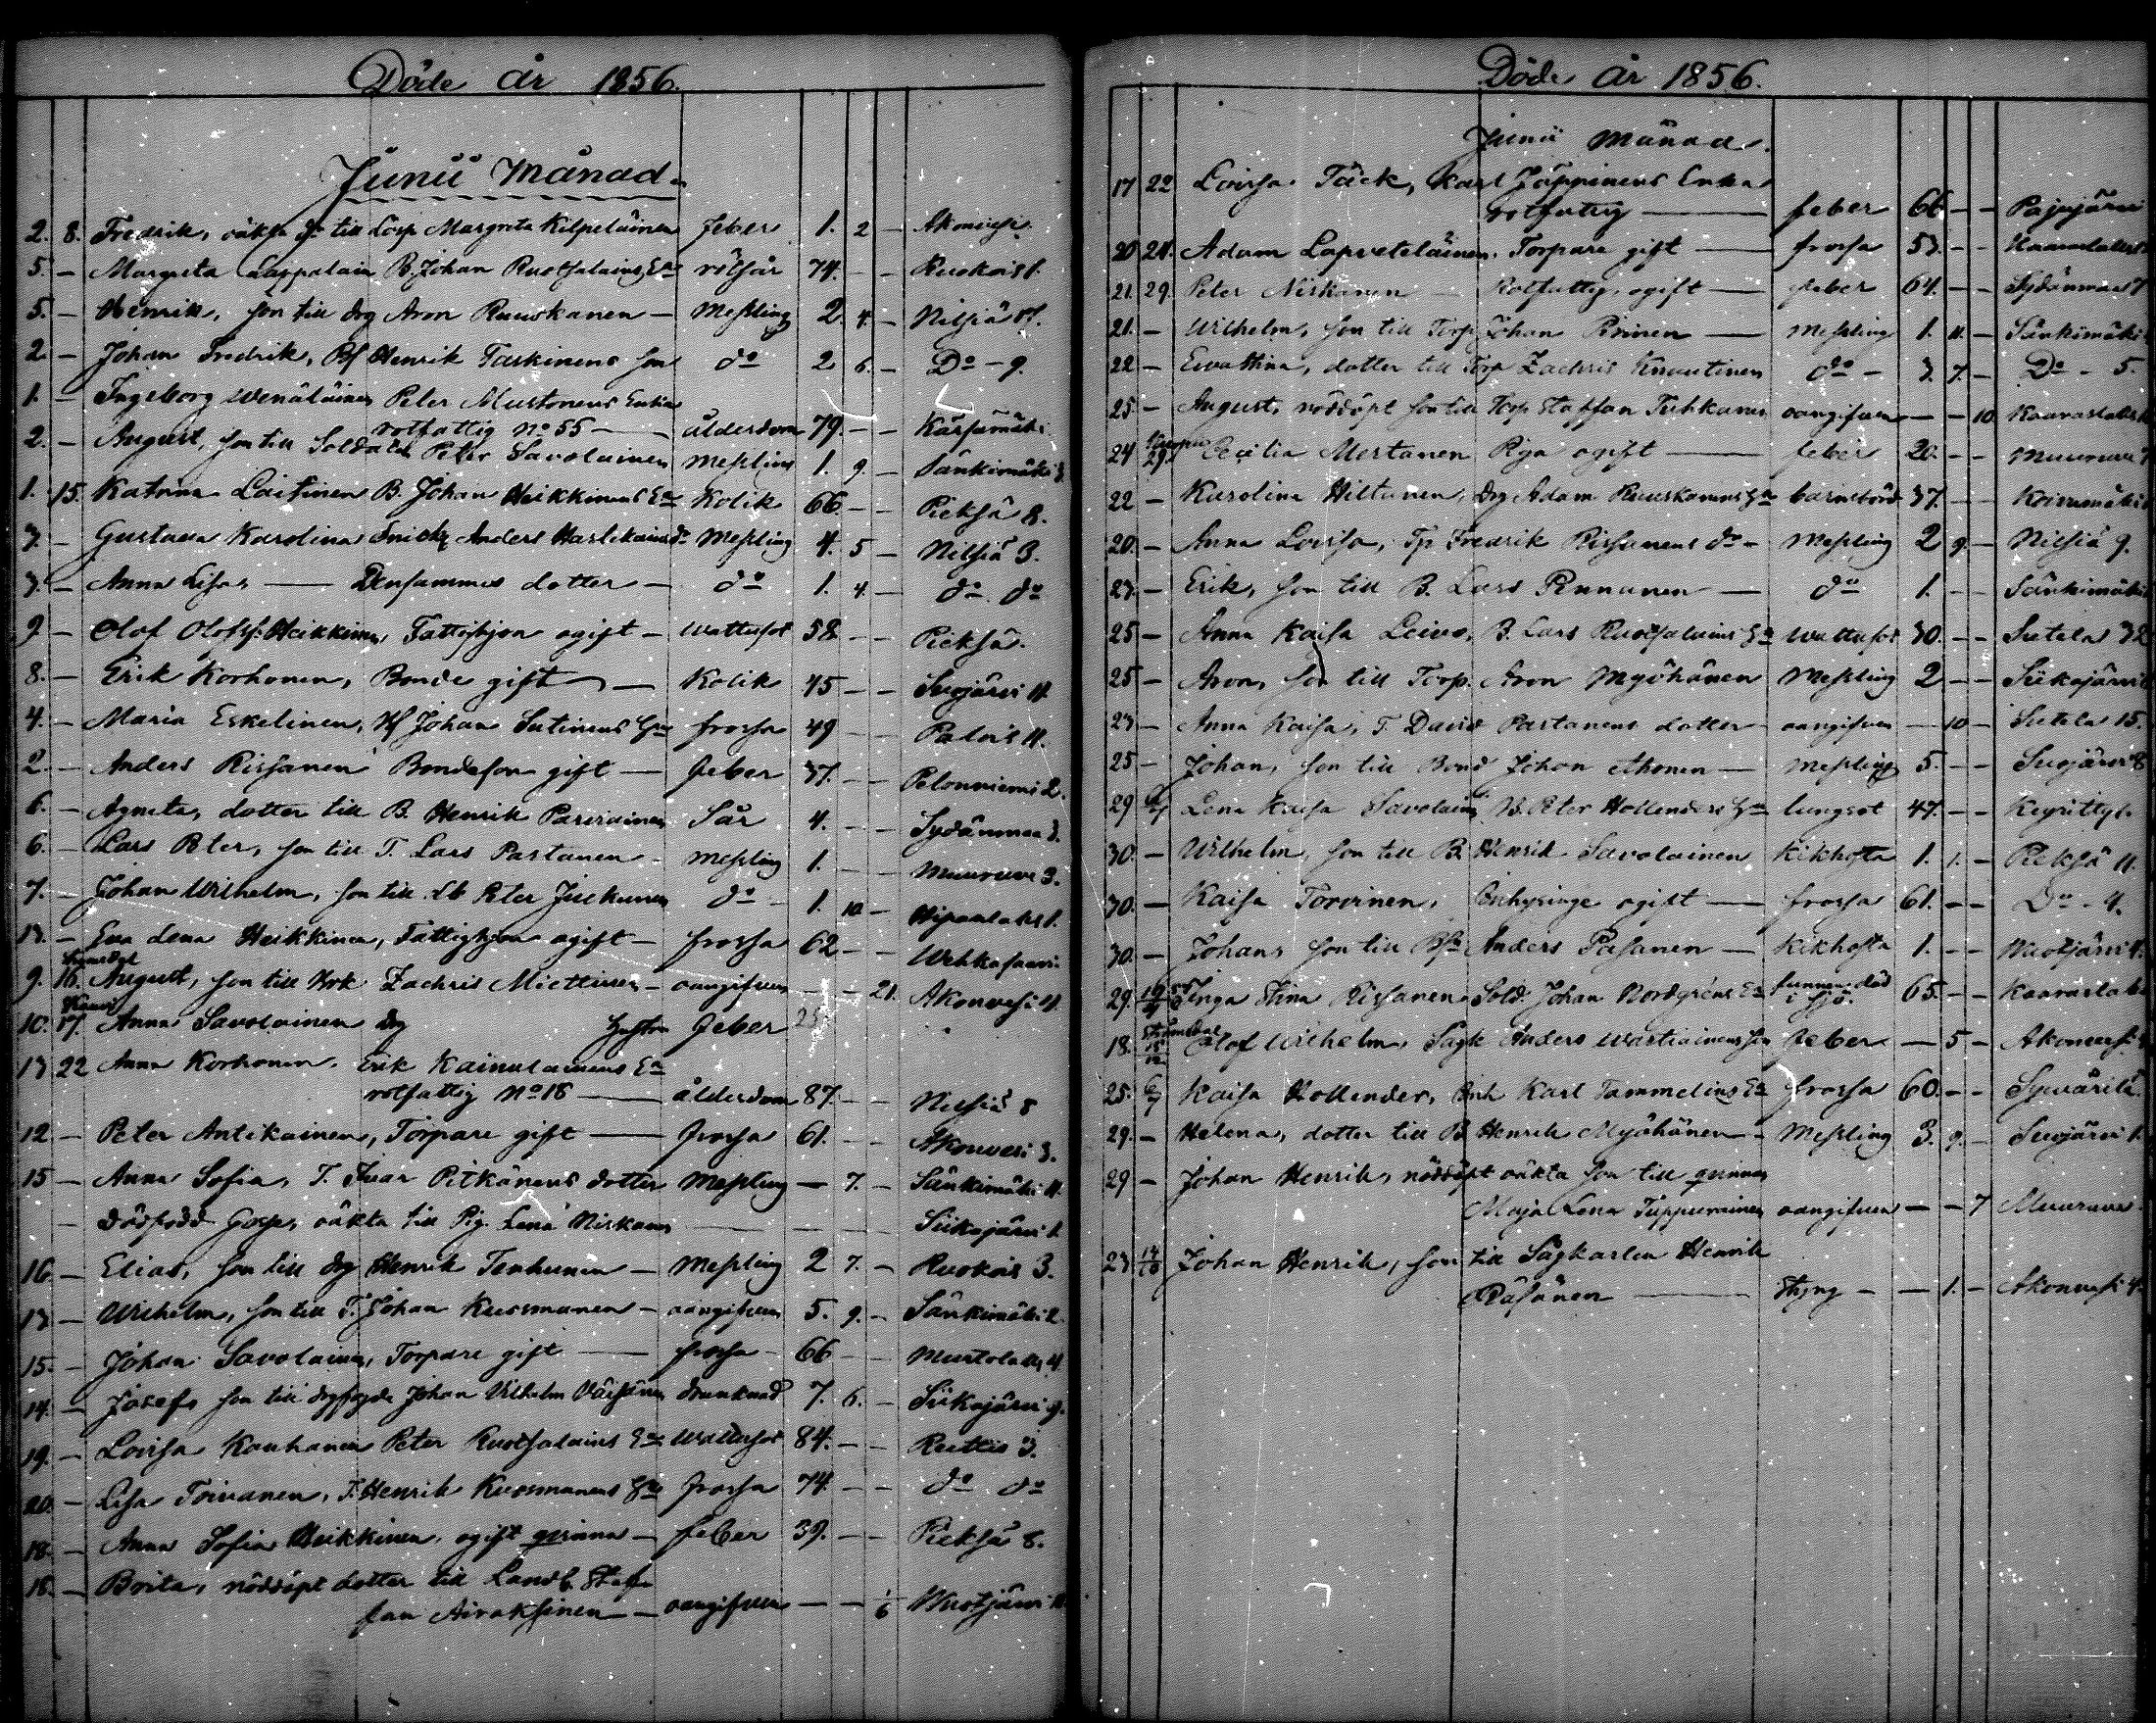 Döde år 1856.
Junii Månad.
2. 8. Fredrik, oäkta son till Lösp Margreta Kilpeläinen feber 1. 2 - Akonvesi
5. - Margreta Lappalain B. Johan Ruotsalains Ea rötsår 74. - - Ruokois 1.
5. - Henrik, son till drg Aron Ruuskanen - Messling 2. 4. - Nilsiä
2 - Johan Fredrik, Bf Henrik Taskinens son do 2 6. - Do - 9.
1. - Ingeborg Wenäläinen Peter Mustonens Enka
rotfattig No 55 - ålderdom 79. - - Kärsämäki
2. - August, son till Soldaten Peter Savolainen Messling 1. 9. - Sänkimäki
1. 15. Katrina Laitinen B. Johan Heikkinens Ea Kolik 66. - - Pieksä 8.
3. - Gustava Karolina Anders Harlikains dr Messling 4. 5 - Nilsiä 3.
3. - Anna Lisa, - Densammes dotter - do 1. 4. - do do
9 - Olof Olofss. Heikkinen, Fattighjon ogift - Wattusot 58 - - Pieksä.
8. - Erik Korhonen, Bonde gift - Kolik 45 - - Suojärvi 11.
4. - Maria Eskelinen, Johan Sutinens Hu frossa 49 - - Palois 11.
2. - Anders Rissanen Bondeson gift - feber 37. - - Pelonniemi 2.
6. - Agneta, dotter till B. Henrik Parviainen Sår 4. - - Sydänmaa 3.
6. - Lars Peter, son till T. Lars Partanen - Messling 1. - - Muuruve 3.
7. - Johan Wilhelm, son till Lb Peter Juckunen do - 1. 10 - Hipanlaks 1.
13. - Eva Lena Heikkinen, Fattighjon ogift - frossa 62 - - Wehkasaari
9. 16. August, son till Zachris Miettinen - oangifven - - 21. Akonvesi 4.
10. 17. Anna Savolainen drg Hustru feber 25
13 22 Anna Korhonen. Erik Kainulainens Ea
rotfattig No 18 - ålderdom 87. - - Nilsiä 8
12 - Peter Antikainen, Torpare gift - frossa 61. - - Akonvesi 3.
15 - Anna Sofia, T. Ivar Pitkänens dotter Messling - 7. - Sänkimäki 11.
- Dödfödd Gosse, oäkta till Pig. Lena Niskanen - - - Siikajärvi 1.
16 - Elias, son till drg Henrik Tenhunen - Messling 2 7. - Ruokois 3.
13 - Wilhelm, son till T. Johan Kuosmanen - oangifven 5. 9. - Sänkimäki 2.
15. - Johan Savolainen, Torpare gift - frossa - 66 - - Murtolaks 4
14. - Josef, son till Johan Vilhelm Väisänen drunknad 7. 6. - Siikajärvi 9.
19. - Lovisa Kauhanen Peter Ruotsalains Ea Wattusot 84. - - Reittiö 3.
20. - Lisa Toivanen, T. Henrik Kuosmanens Hu frossa 74. - - do do
18. - Anna Sofia Heikkinen, ogift qvinna - feber 39. - - Pieksä 8.
18. - Brita, nöddöpt dotter till Landb. Staf-
fan Airaksinen - oangifven - - 1/6 Wuotjärvi
Döde år 1856.
Junii Månad.
17 22 Lovisa Täck, Karl Jäppinens Enka
rotfattig - feber 66 - - Pajujärvi
20 24. Adam Lapveteläinen. Torpare gift - frossa 53. - - Kaaraslaks
21. 29. Peter Niskanen - Rotfattig, ogift - feber 64. - - Sydänmaa 7
21. - Wilhelm, son till Torp Johan Rönen - Messling 1. 11. - Sänkimäki
22 - Eva Stina, dotter till Torp Zachris Knuutinen do - 3. 7. - Do - 5.
25 - August, nöddöpt son till Torp Staffan Tuhkanen oangifven - - 10 Kaaraslaks
24 Kuopio 29. Cecilia Mertanen Piga ogift - feber 20. - - Muuruve
22 - Karolina Hiltunen, drg Adam Ruuskanens Hu barnsbörd 37. - -
20. - Anna Lovisa, Tp Fredrik Rissanens dr - Messling 2 9. - Nilsiä 9.
23. - Erik, son till B. Lars Pennanen - do 1. - Sänkimäki
25 - Anna Kaisa Leivo, B. Lars Ruotsalains Hu Wattusot 30. - - Sutela 32
25 - Aron, son till Torp. Aron Myöhänen Messling 2 - - Siikajärvi
23 - Anna Kaisa, T. David Partanens dotter - oangifven - 10 - Sutela 15.
25 - Johan, son till Bond Johan Ahonen - Messling 5. - - Suojärvi 8
29 6/7 Lena Kaisa Savolain, B. Peter Hollenders Hu lungsot 47. - - Keyrittyl.
30. - Wilhelm, son till B. Henrik Savolainen Kikhosta 1. 1. - Pieksä 11.
30. - Kaisa Torvinen, Inhysinge ogift - frossa 61. - - Do - 4.
30. - Johan, son till Bf Anders Pasanen - Kikhosta 1. - - Wuotjärvi
29. Inga Stina Rissanen Sold. Johan Nordgréns Ea funnen död
i sjö. 65. - - Kaaraslaks
18. Strömsdal Olof Wilhelm, Sågk Anders Wartiainens son feber - 5 - Akonvesi
25. 6/7 Kaisa Hollender, Inh Karl Tammelins Ea frossa 60. - - Syväril.
29. - Helena, dotter till B Henrik Myöhänen - Messling 3. 9. - Suojärvi 1.
29 - Johan Henrik, nöddöpt oäkta son till qvinnan
Maja Lena Tuppurainen oangifven - - 7 Muuruve
23 14/10 Johan Henrik, son till Sågkarlen Henrik
Räsänen - Styng - - 1. - Akonvesi 4.